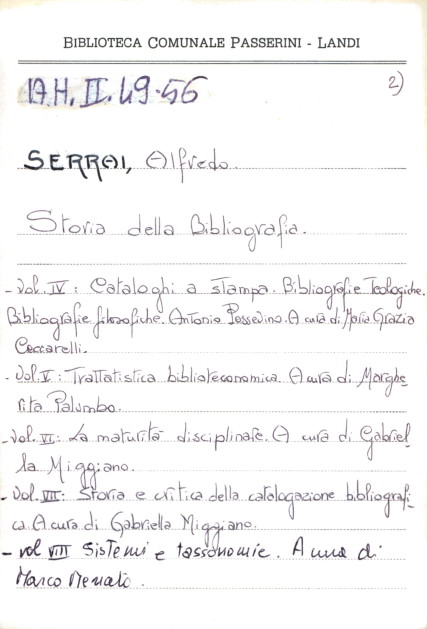 BIBLIOTECA COMUNALE PASSERINI - LANDI
17.H.II.49-56
2)
SERRAI, Alfredo.
Storia della Bibliografia.
- Vol. IV: Cataloghi a stampa. Bibliografie Teologiche.
Bibliografie filosofiche. Antonio Possevino. A cura di Maria Grazia
Ceccarelli.
- Vol. V: Trattatistica biblioteconomica. A cura di Marghe
rita Palumbo.
- Vol. VI: La maturità disciplinare. A cura di Gabriel
la Miggiano.
- Vol. VII: Storia e critica della catalogazione bibliografi
ca. A cura di Gabriella Miggiano.
- vol VIII Sistemi e tassonomie. A cura di
Marco Menato.